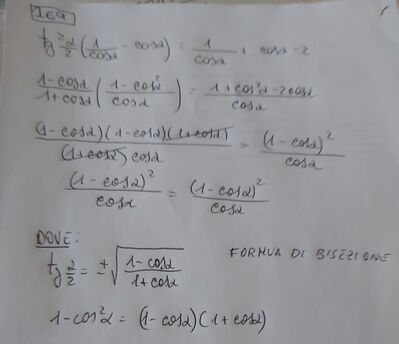 169
tg²α/2 (1/cosα - cosα) = 1/cosα + cosα - 2
1-cosα/1+cosα (1-cos²α/cosα) = 1+cos²α-2cosα/cosα
(1-cosα)(1-cosα)(1+cosα)/(1+cosα)cosα = (1-cosα)²/cosα
(1-cosα)²/cosα = (1-cosα)²/cosα
DOVE:
tg α/2 = ±√(1-cosα/1+cosα) FORMULA DI BISEZIONE
1-cos²α = (1-cosα)(1+cosα)